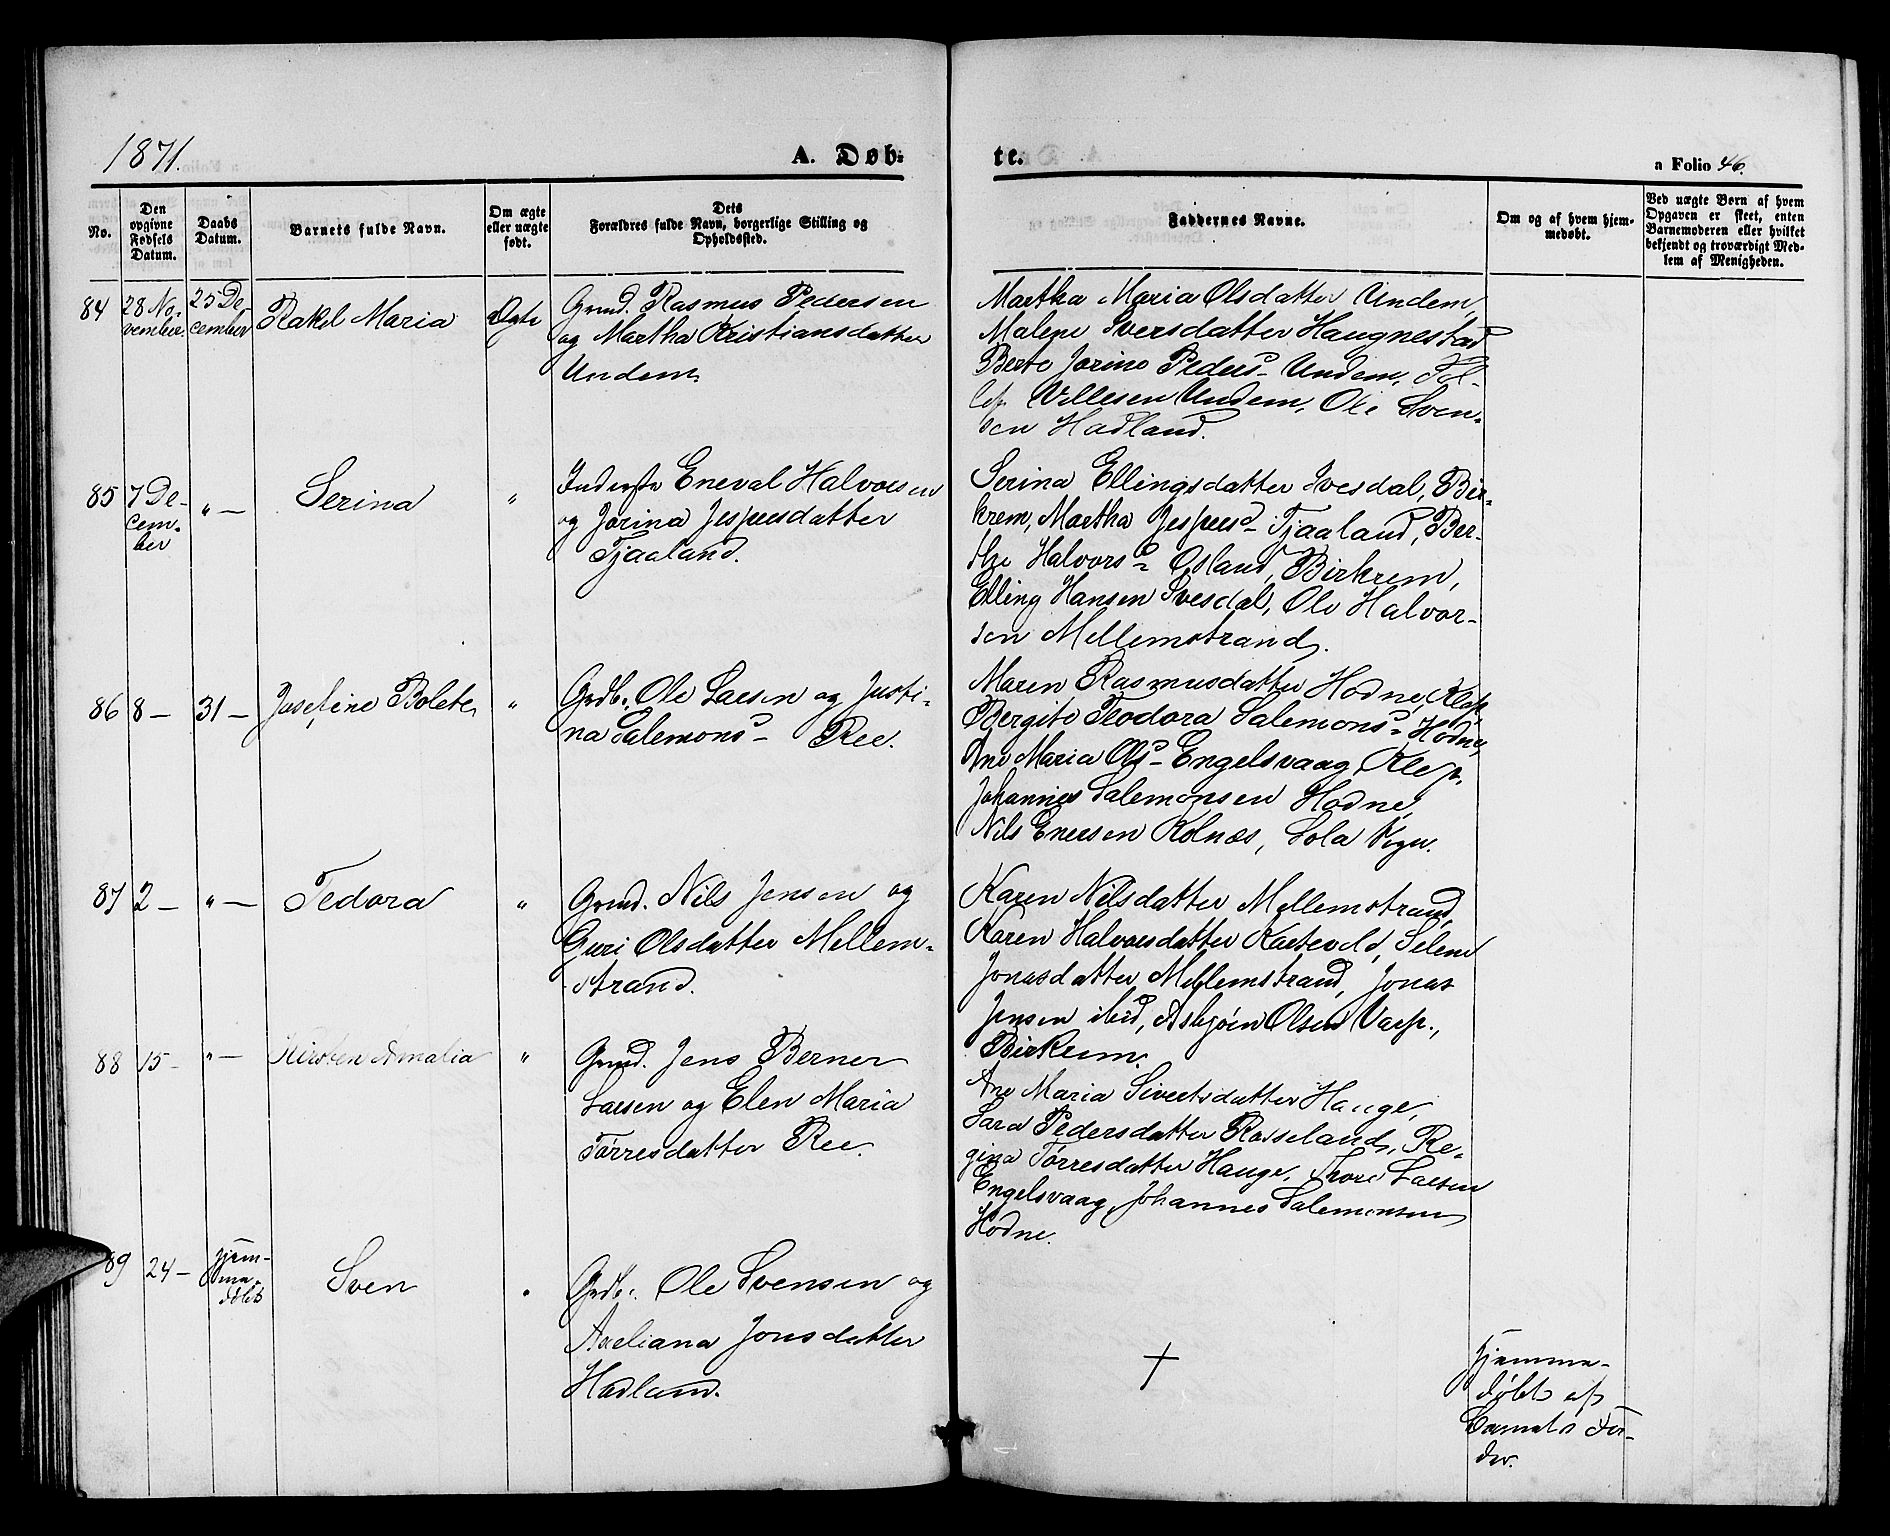 1871.
A. Døb-
te.
a Folio 46.
No.
Den opgivne Fødsels Datum.
Daabs Datum.
Barnets fulde Navn.
Om ægte eller uægte født.
Dets
Forældres fulde Navn, borgerlige Stilling og
Opholdssted.
Faddernes Navne.
Om og af hvem hjem-
medøbt.
Ved uægte Børn af hvem
Opgaven er skeet, enten
Barnemoderen eller hvilket
bekjendt og troværdigt Med-
lem af Menigheden.
84 28 No- 25 De- Rakel Maria Ægte Grmd. Rasmus Pedersen
vember. cember og Martha Kristiansdatter
Undem.
Martha Maria Olsdatter Undem,
Malene Iversdatter Haugnestad
Berte Jorine Pedersd- Undem, Tol-
lef Villesen Undem, Ole Sven-
sen Hadland.
85 7 De- " — Serina " Inderste Eneval Halvorsen
cem- og Jorina Jespersdatter
ber Tjaaland.
Serina Ellingsdatter Ivesdal, Bir-
krem, Martha Jespersd- Tjaaland, Ber-
the Halvorsd- Osland, Birkrem,
Elling Hansen Ivesdal, Ole Halvor-
sen Mellemstrand.
86 8 — 31 — Josefine Bolete " Grdb. Ole Larsen og Justi-
na Salemonsd- Ree.
Maren Rasmusdatter Hodne, Klep,
Bergite Teodora Salemonsd- Hodne,
Ane Maria Olsd- Engelsvaag, Klep,
Johannes Salemonsen Hodne,
Nils Enersen Kolnæs, Sola
87 2 — " — Tedora " Grmd. Nils Jensen og
Guri Olsdatter Mellem-
strand.
Karen Nilsdatter Mellemstrand,
Karen Halvorsdatter Kartevold, Selene
Jonasdatter Mellemstrand, Jonas
Jensen ibid, Asbjøen Olsen Varp,
Birkrem.
88 15 — " — Kirsten Amalia " Grmd. Jens Berner
Larsen og Elen Maria
Tørresdatter Ree.
Ane Maria Sivertsdatter Hauge,
Sara Pedersdatter Rosseland, Re-
gina Tørresdatter Hauge, Thore Larsen
Engelsvaag, Johannes Salemonsen
Hodne.
89 24 — Hjem- Sven " Grdb. Ole Svensen og
me- Axeliana Jonsdatter
døbt Hadland.
†
Hjemme-
døbt af
Barnets Fa-
der.